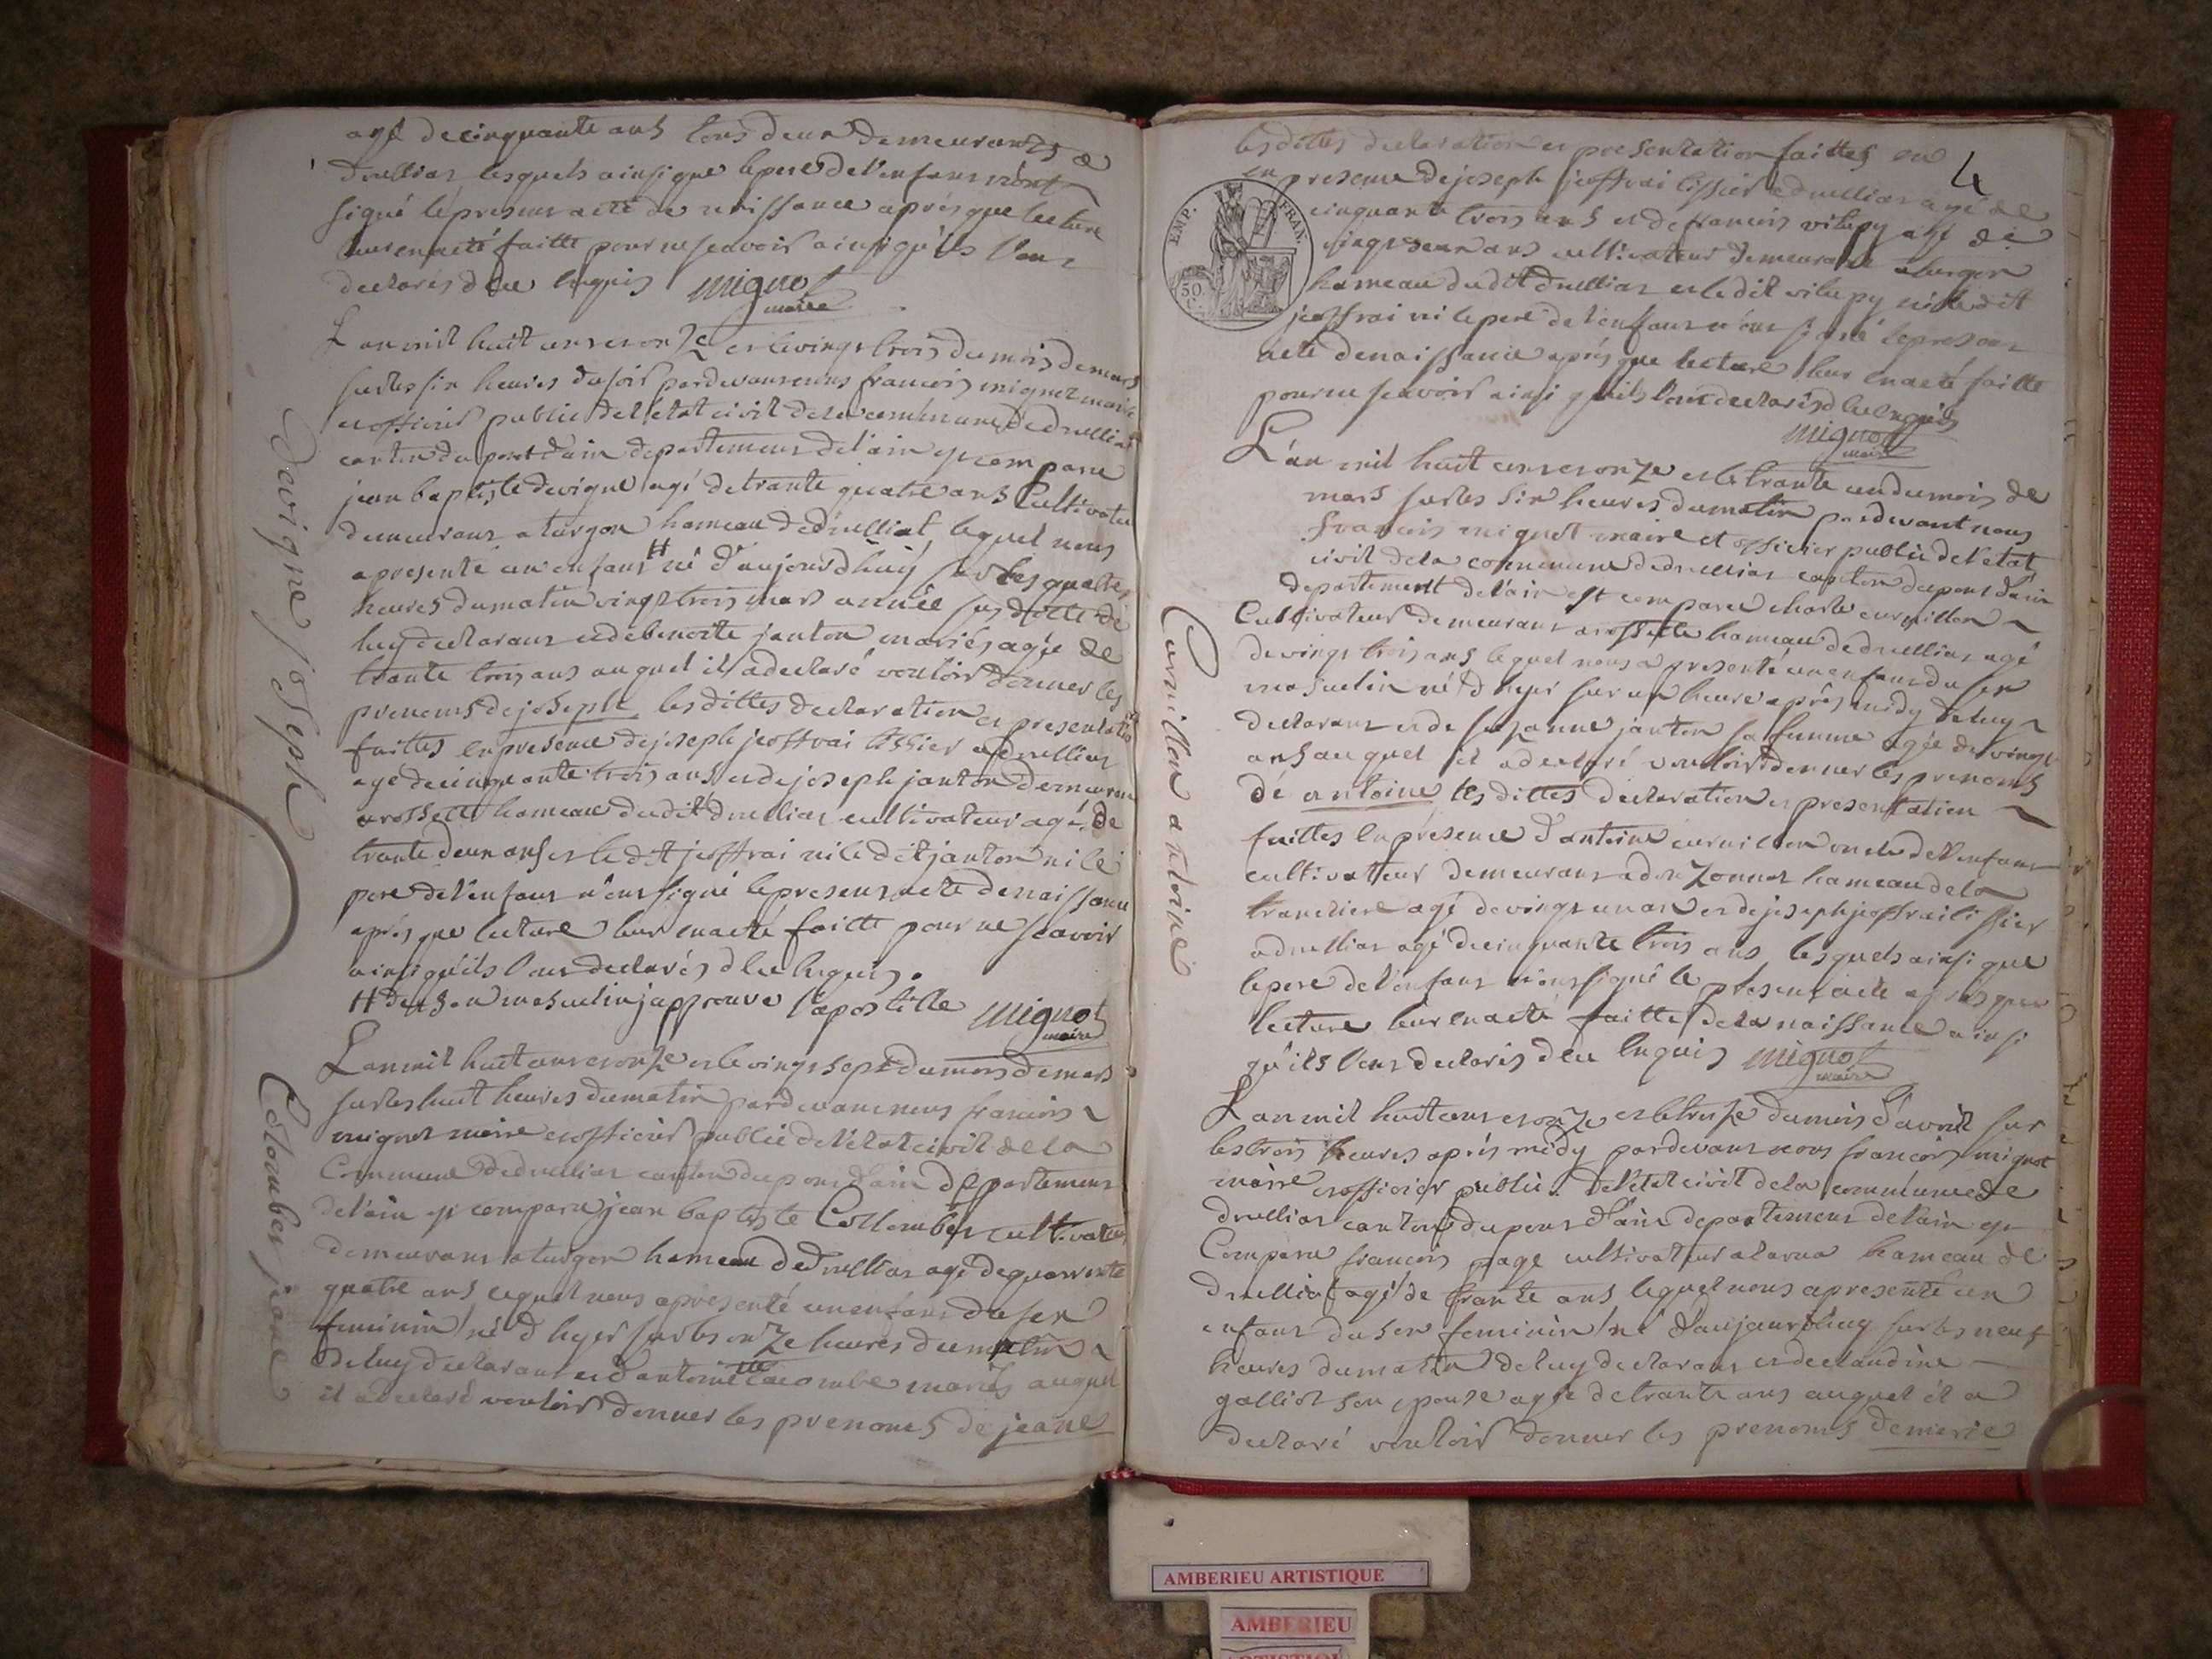 agé de cinquante ans tous deux demeurants a
druillias lesquels ainsi que le pere de l'enfans n'ont
signé le present acte de naissance aprés que lecture
leur en a eté faitte pour ne scavoir ainsi qu'ils l'ont
declarés d lee enquis mignot
maire
L an mil huit cens et onze et le vingt trois du mois de mars
sur les six heures du soir pardevant nous francois mignot maire
et officier public de l'état civil de la commune de druillias
canton du pont d'ain departement de l'ain est comparu
jean baptiste devigne agé de trante quatre ans Cultivateur
demeurans a turgon hameau de druilliat lequel nous
a presenté un enfans # né d'aujourd'huy sur les quatre
heures du matin vingt trois mars année sus ditte de
luy declarans et de benoite janton mariés agée de
trante trois ans auquel il a declaré vouloir donner les
prenoms de joseph les dittes declaration et presentation
faittes en presence de joseph jeoffrai tissier a druillias
agé de cinquante trois ans et de joseph janton demeurans
a rossette hameau du dit druillias cultivateur agé de
trante deux ans et le dit jeoffrai ni le dit janton ni le
pere de l'enfans n'ont signé le present acte de naissance
aprés que lecture leur en a eté faitte pour ne scavoir
ainsi qu'ils l'ont declarés d lee enquis.
# du sex masculin japprouve l'apostille mignot
maire
L an mil huit cens et onze et le vingt sept du mois de mars
sur les huit heures du matin pardevans nous francois
mignot maire et officier public de l'état civil de la
Commune de druillias canton du pont d'ain departement
de l'ain est comparu jean baptiste Collomber cultivateur
demeurans a turgon hameau de druillias agé de quarrante
quatre ans lequel nous a presenté un enfans du sex
feminin né d hyer sur les onze heures du matin
de luy declarans et d'antoinette lacombe mariés auquel
il a declaré vouloir donner les prenoms de jeane
Devigne joseph
Colomber jeane
4
EMP. FRAN.
50
C.
les dittes declaration et presentation faittes en
en presence de joseph jeoffrai tissier a druillias agé de
cinquante trois ans et de francois vilepy agé de
cinq ans cultivateur demeurant a turgon
hameau du dit druillias et le dit vilepy ni le dit
jeoffrai ni le pere de l'enfans n'ont signé le present
acte de naissance aprés que lecture leur en a eté faitte
pour ne scavoir ainsi qu'ils l'ont declarés d lee enquis
mignot
maire
L'an mil huit cens et onze et le trante un du mois de
mars sur les six heures du matin pardevant nous
francois mignot maire et officier public de l'état
civil de la commune de druillias canton du pont d'ain
departement de l'ain est comparu charle curnillon
Cultivateur demeurans a rossette hameau de druillias agé
de vingt trois ans lequel nous a presenté un enfans du sex
masculin né d hyer sur un heure aprés midy de luy
declarans et de suzanne janton sa femme agée de vingt
ans auquel il a declaré vouloir donner les prenoms
de antoine les dittes declaration et presentation
faittes en presence d'antoine curnillon oncle de l'enfans
cultivateur demeurans a donzonnas hameau de la
tranclierre agé de vingt un an et de joseph jeoffrai tissier
a druillias agé de cinquante trois ans lesquels ainsi que
le pere de l'enfans n'ont signé le present acte aprés que
lecture leur en a eté faitte de la naissance ainsi
qu'ils l'ont declarés d lee enquis mignot
maire
L an mil huit cens et onze et le treize du mois d'avril sur
les trois heures aprés midy pardevans nous francois mignot
maire et officier public de l'état civil de la commune de
druillias canton du pont d'ain departement de l'ain est
Comparu francois page cultivateur a larua hameau de
druilliat agé de trante ans lequel nous a presenté un
enfans du sex feminin né d'aujourd'huy sur les neuf
heures du matin de luy declarans et de claudine
galliot son epouse agée de trante ans auquel il a
declaré vouloir donner les prenoms de marie
Curnillon antoine
AMBERIEU ARTISTIQUE
AMBERIEU
ARTISTIQUE